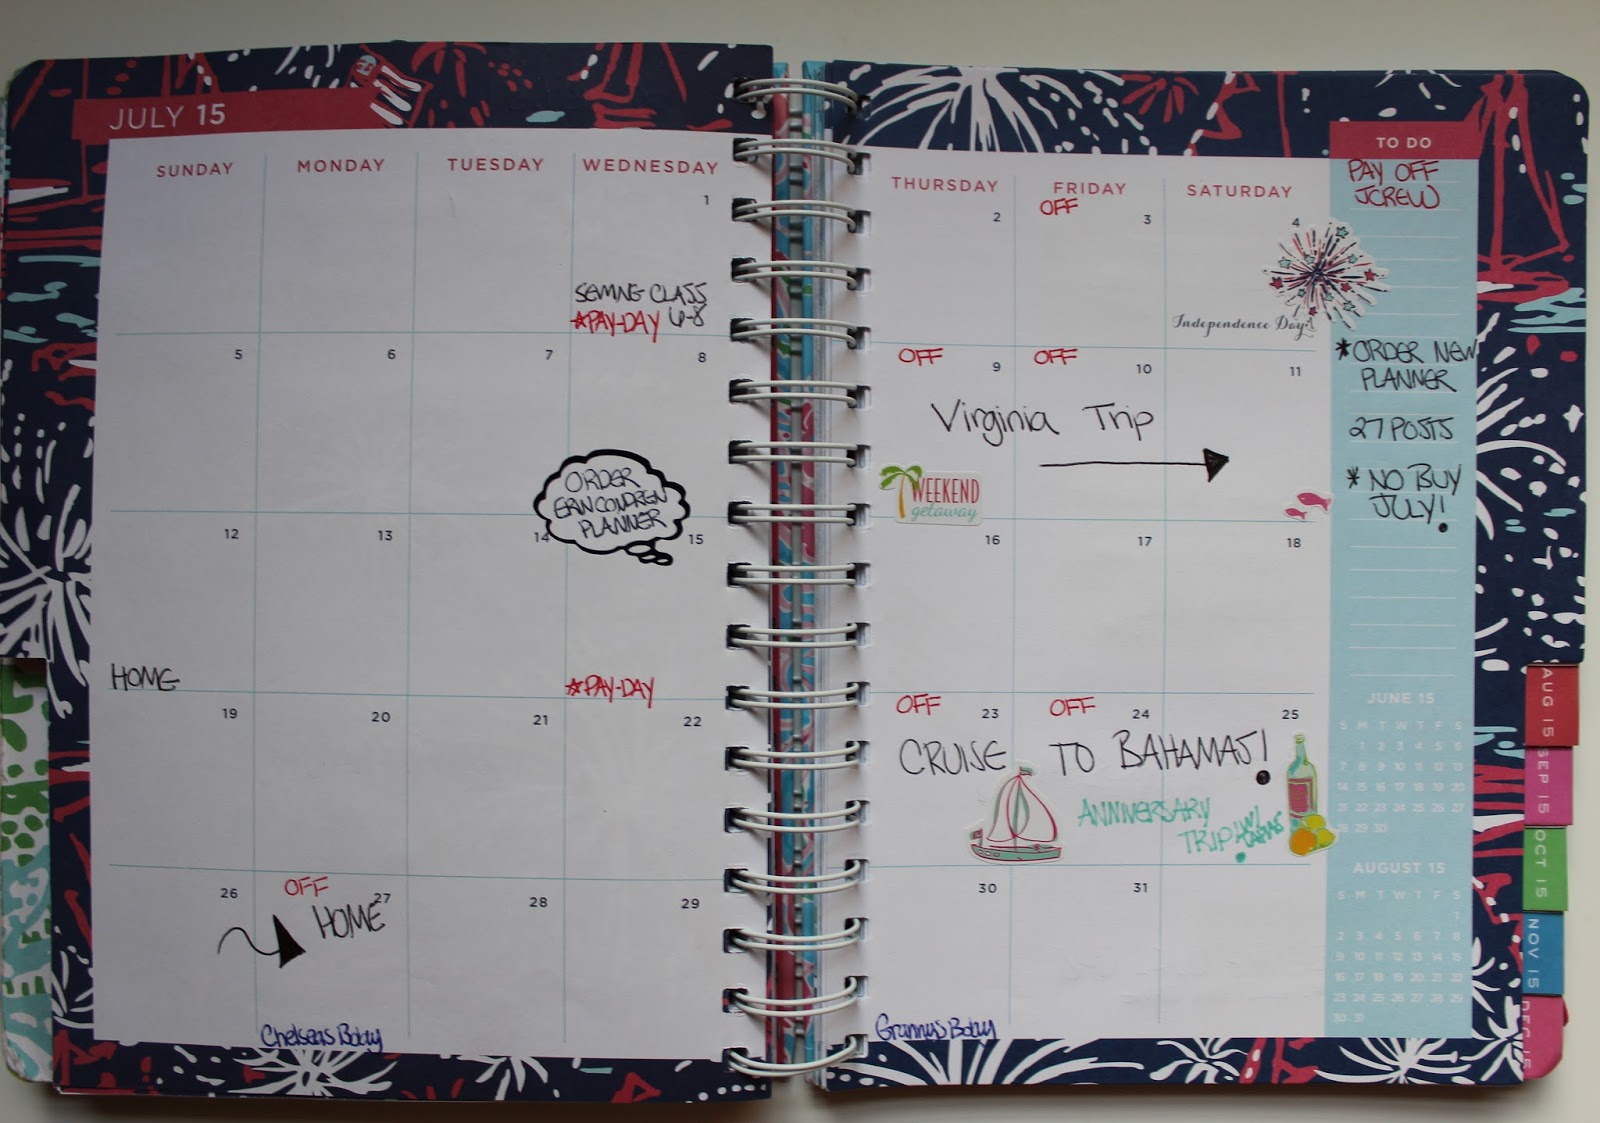 JULY 15
SUNDAY MONDAY TUESDAY WEDNESDAY
1
SEWING CLASS
*PAY-DAY 6-8
5 6 7 8
ORDER
ERIN CONDREN
PLANNER
12 13 14 15
HOME
*PAY-DAY
19 20 21 22
26 OFF 27 28 29
HOME
Chelseas Bday
THURSDAY FRIDAY SATURDAY
2 OFF 3 4
Independence Day
OFF 9 OFF 10 11
Virginia Trip
WEEKEND
getaway
16 17 18
OFF 23 OFF 24 25
CRUISE TO BAHAMAS!
ANNIVERSARY
TRIP W/
30 31
Granny's Bday
TO DO
PAY OFF
JCREW
*ORDER NEW
PLANNER
27 POSTS
* NO BUY
JULY!
JUNE 15
S M T W T F S
1 2 3 4 5 6
7 8 9 10 11 12 13
14 15 16 17 18 19 20
21 22 23 24 25 26 27
28 29 30
AUGUST 15
S M T W T F S
1
2 3 4 5 6 7 8
9 10 11 12 13 14 15
16 17 18 19 20 21 22
23 24 25 26 27 28 29
30 31
AUG 15
SEP 15
OCT 15
NOV 15
DEC 15